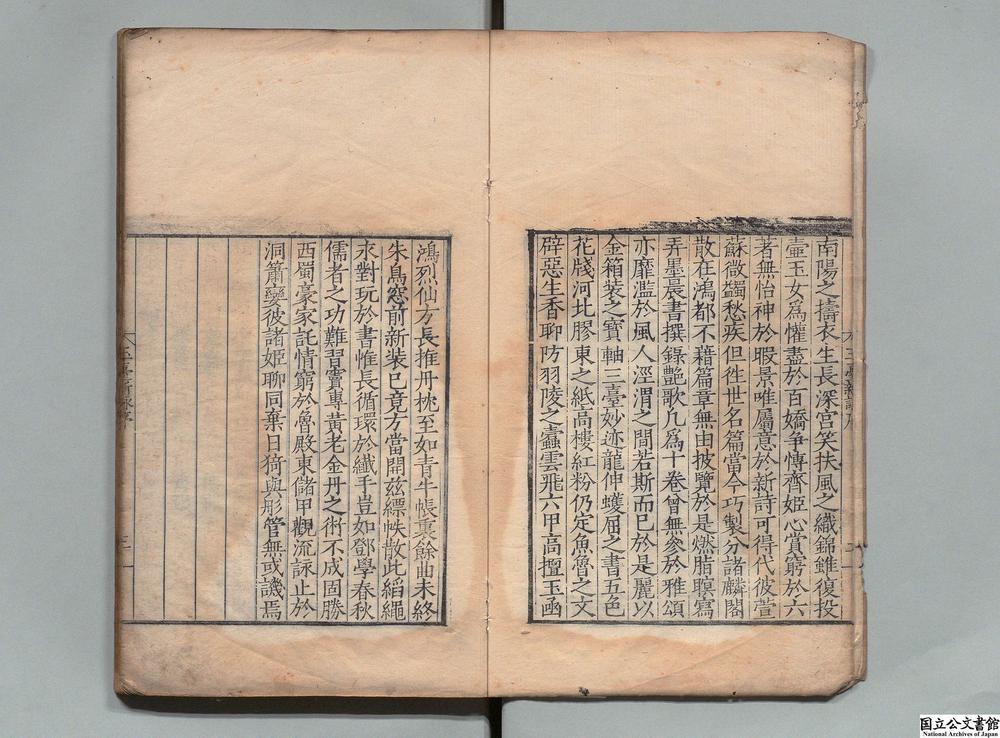 南陽之擣衣生長深宮笑扶風之織錦雖復投
壺玉女爲懽盡於百嬌争愽齊姬心賞窮於六
者無怡神於暇景唯屬意於新詩可得代彼萱
蘇微蠲愁疾但徃世名篇當今巧製分諸麟閣
散在鴻都不藉篇章無由披覽於是燃脂暝寫
弄墨晨書撰錄艶歌凡爲十卷曾無參於雅頌
亦靡濫於風人涇渭之間若斯而已於是麗以
金箱装之寶軸三臺妙迹龍伸蠖屈之書五色
花牋河北膠東之紙高樓紅粉仍定魚魯之文
辟惡生香聊防羽陵之蠹雲飛六甲高擅玉函
鴻烈仙方長推丹枕至如青牛帳裏餘曲未終
朱鳥窓前新装已竟方當開兹縹帙散此縚繩
永對玩於書惟長循環於纖手豈如鄧學春秋
儒者之功難習竇專黃老金丹之術不成固勝
西蜀豪家託情窮於魯殿東儲甲觀流詠止於
洞簫孌彼諸姬聊同棄日猗與彤管無或譏焉
国立公文書館
National Archives of Japan